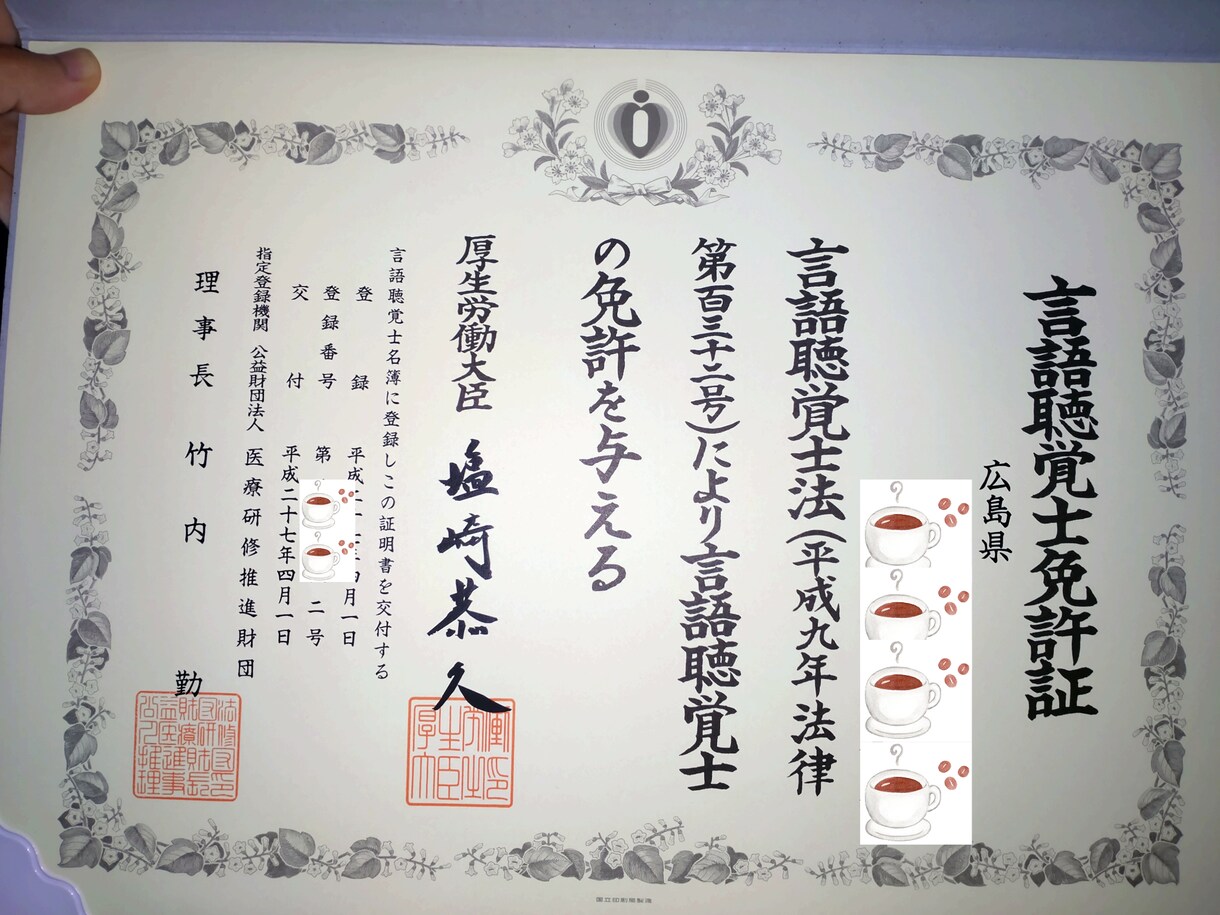 言語聴覚士免許証
広島県
言語聴覚士法(平成九年法律
第百三十二号)により言語聴覚士
の免許を与える
厚生労働大臣 塩崎恭久
言語聴覚士名簿に登録しこの証明書を交付する
登録 平成二十 年四月一日
登録番号 第 二号
交付 平成二十七年四月一日
指定登録機関 公益財団法人 医療研修推進財団
理事長 竹内 勤
国立印刷局製造